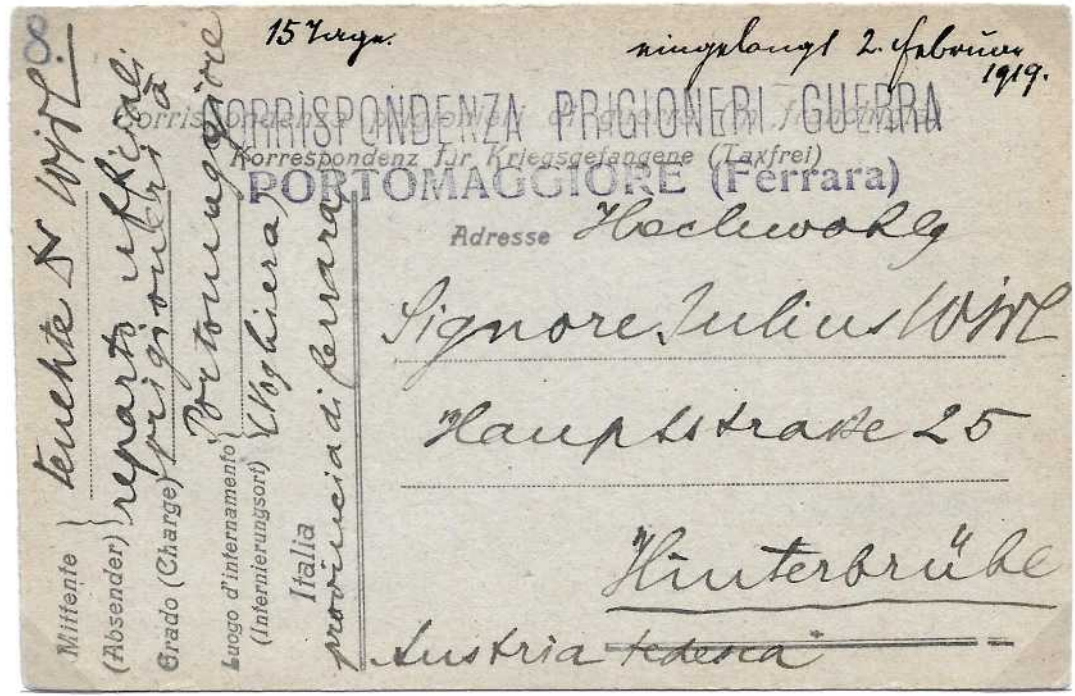 8.
15 Tage.
eingelangt 2. Februar
1919.
Corrispondenza prigionieri di guerra in franchigia
CORRISPONDENZA PRIGIONIERI GUERRA
Korrespondenz für Kriegsgefangene (Taxfrei)
PORTOMAGGIORE (Ferrara)
Adresse Hochwohlg
Signore Julius
Hauptstraße 25
Hinterbrühl
Austria tedesca
Mittente
(Absender)
tenente
reparto ufficiali
prigionieri
Grado (Charge)
Portomaggiore
Luogo d'internamento
(Internierungsort)
(Voghiera)
Italia
provincia di Ferrara